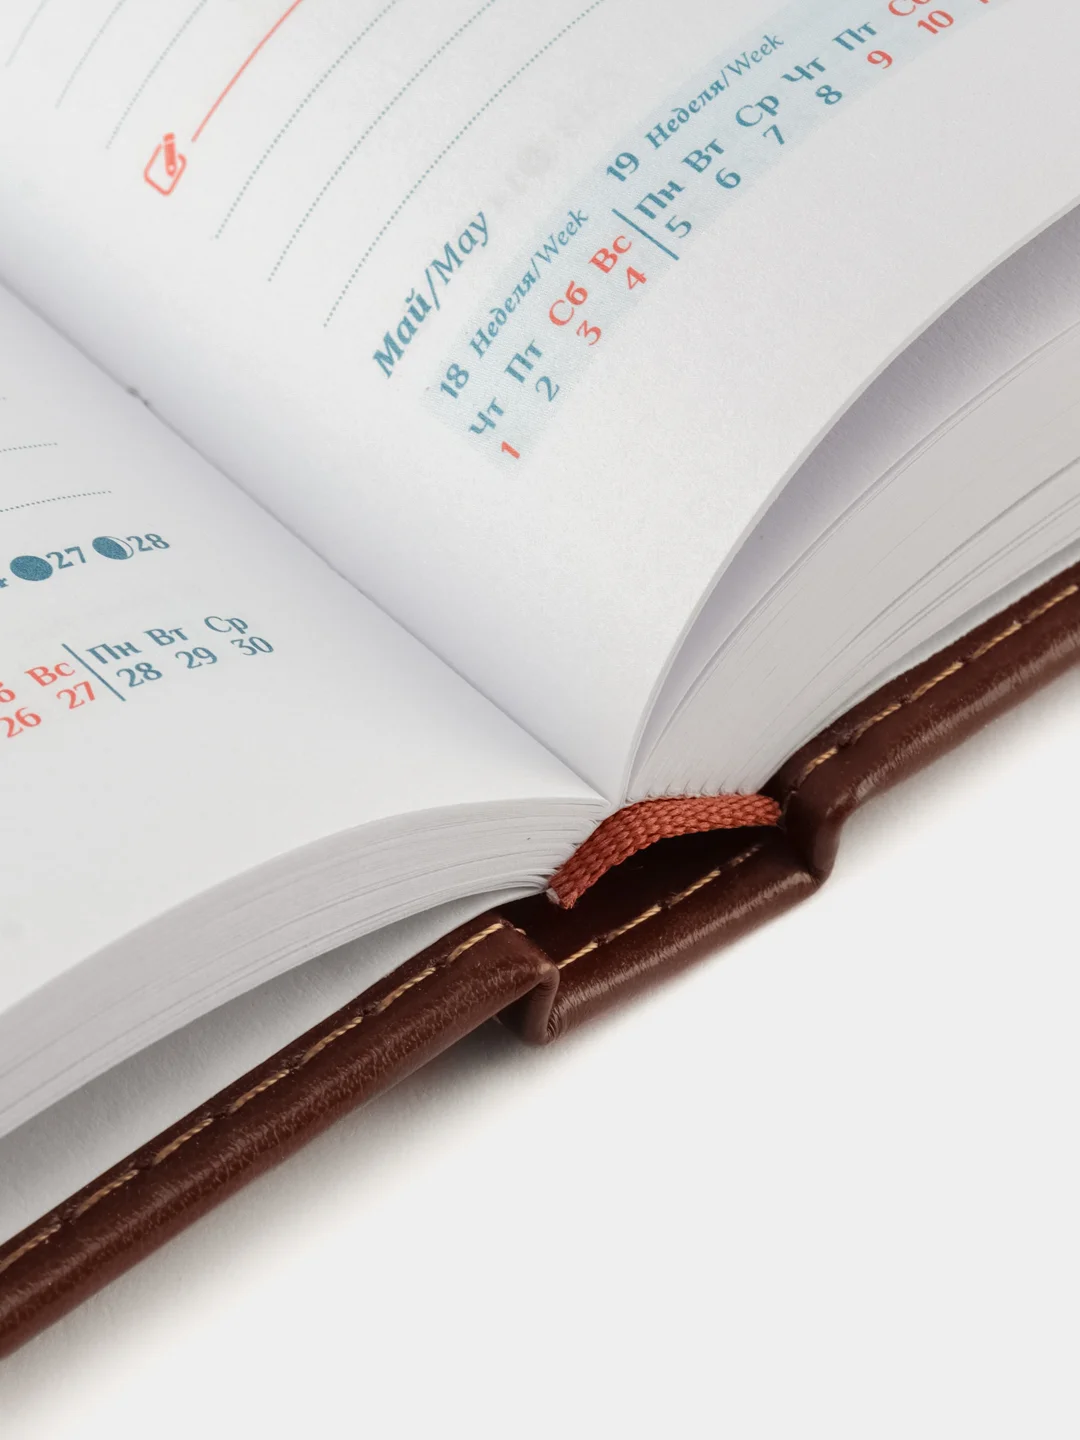 27 28
Вс Пн Вт Ср
26 27 28 29 30
Май/May
18 Неделя/Week 19 Неделя/Week
Чт Пт Сб Вс Пн Вт Ср Чт Пт
1 2 3 4 5 6 7 8 9 10